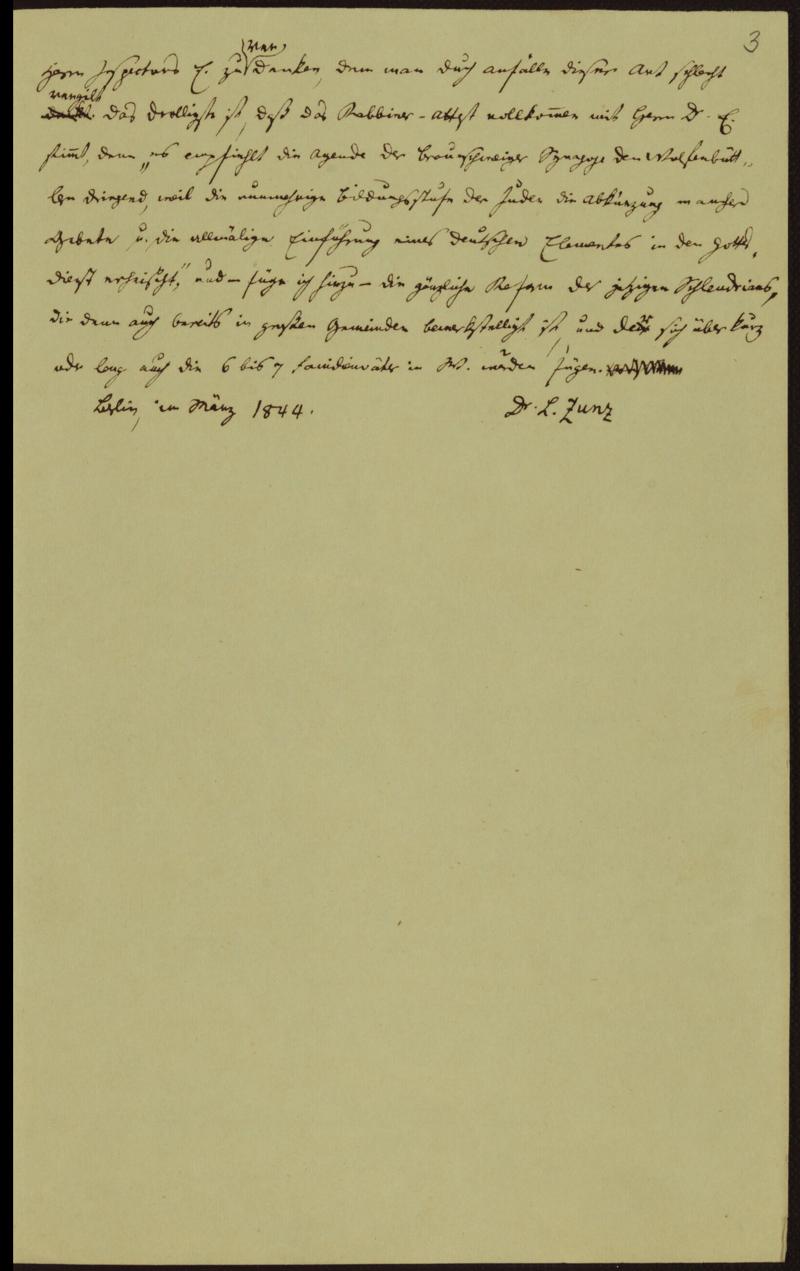 3
Herrn Inspectors E. zu verdenken, dem man durch Anfälle dieser Art schlecht
vergilt. Das Drolligste ist, daß das Rabbiner-Attest vollkommen mit Herrn Dr. E.
stimmt, denn „es empfiehlt die Agende der Braunschweiger Synagoge den Wolfenbütt-
lern dringend, weil die nunmehrige Bildungsstufe der Juden die Abkürzung mancher
Gebete u. die allmälige Einführung eines deutschen Elementes in den Gottes-
dienst erheischt," und – füge ich hinzu – die gänzliche Reform des jetzigen Schlendrians,
die denn auch bereits in großen Gemeinden bewerkstelligt ist, und der sich über kurz
oder lang auch die 6 bis 7 Familienväter in W. werden fügen.
Berlin, im März 1844.
Dr. L. Zunz